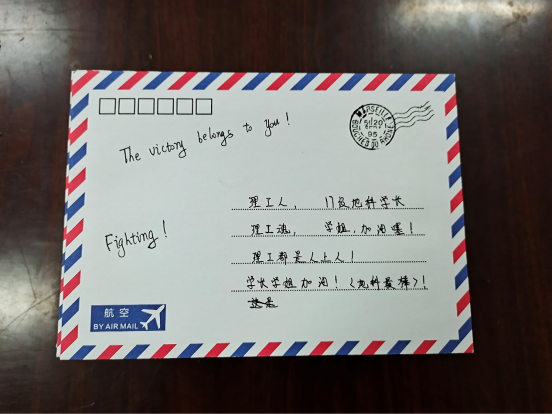 The victory belongs to you!
MARSEILLE
BOUCHES DU RHONE
95
理工人, 17级地科学长
理工魂, 学姐,加油喔!
Fighting!
理工都是人上人!
学长学姐加油!(地科最棒)!
这是
航空
BY AIR MAIL